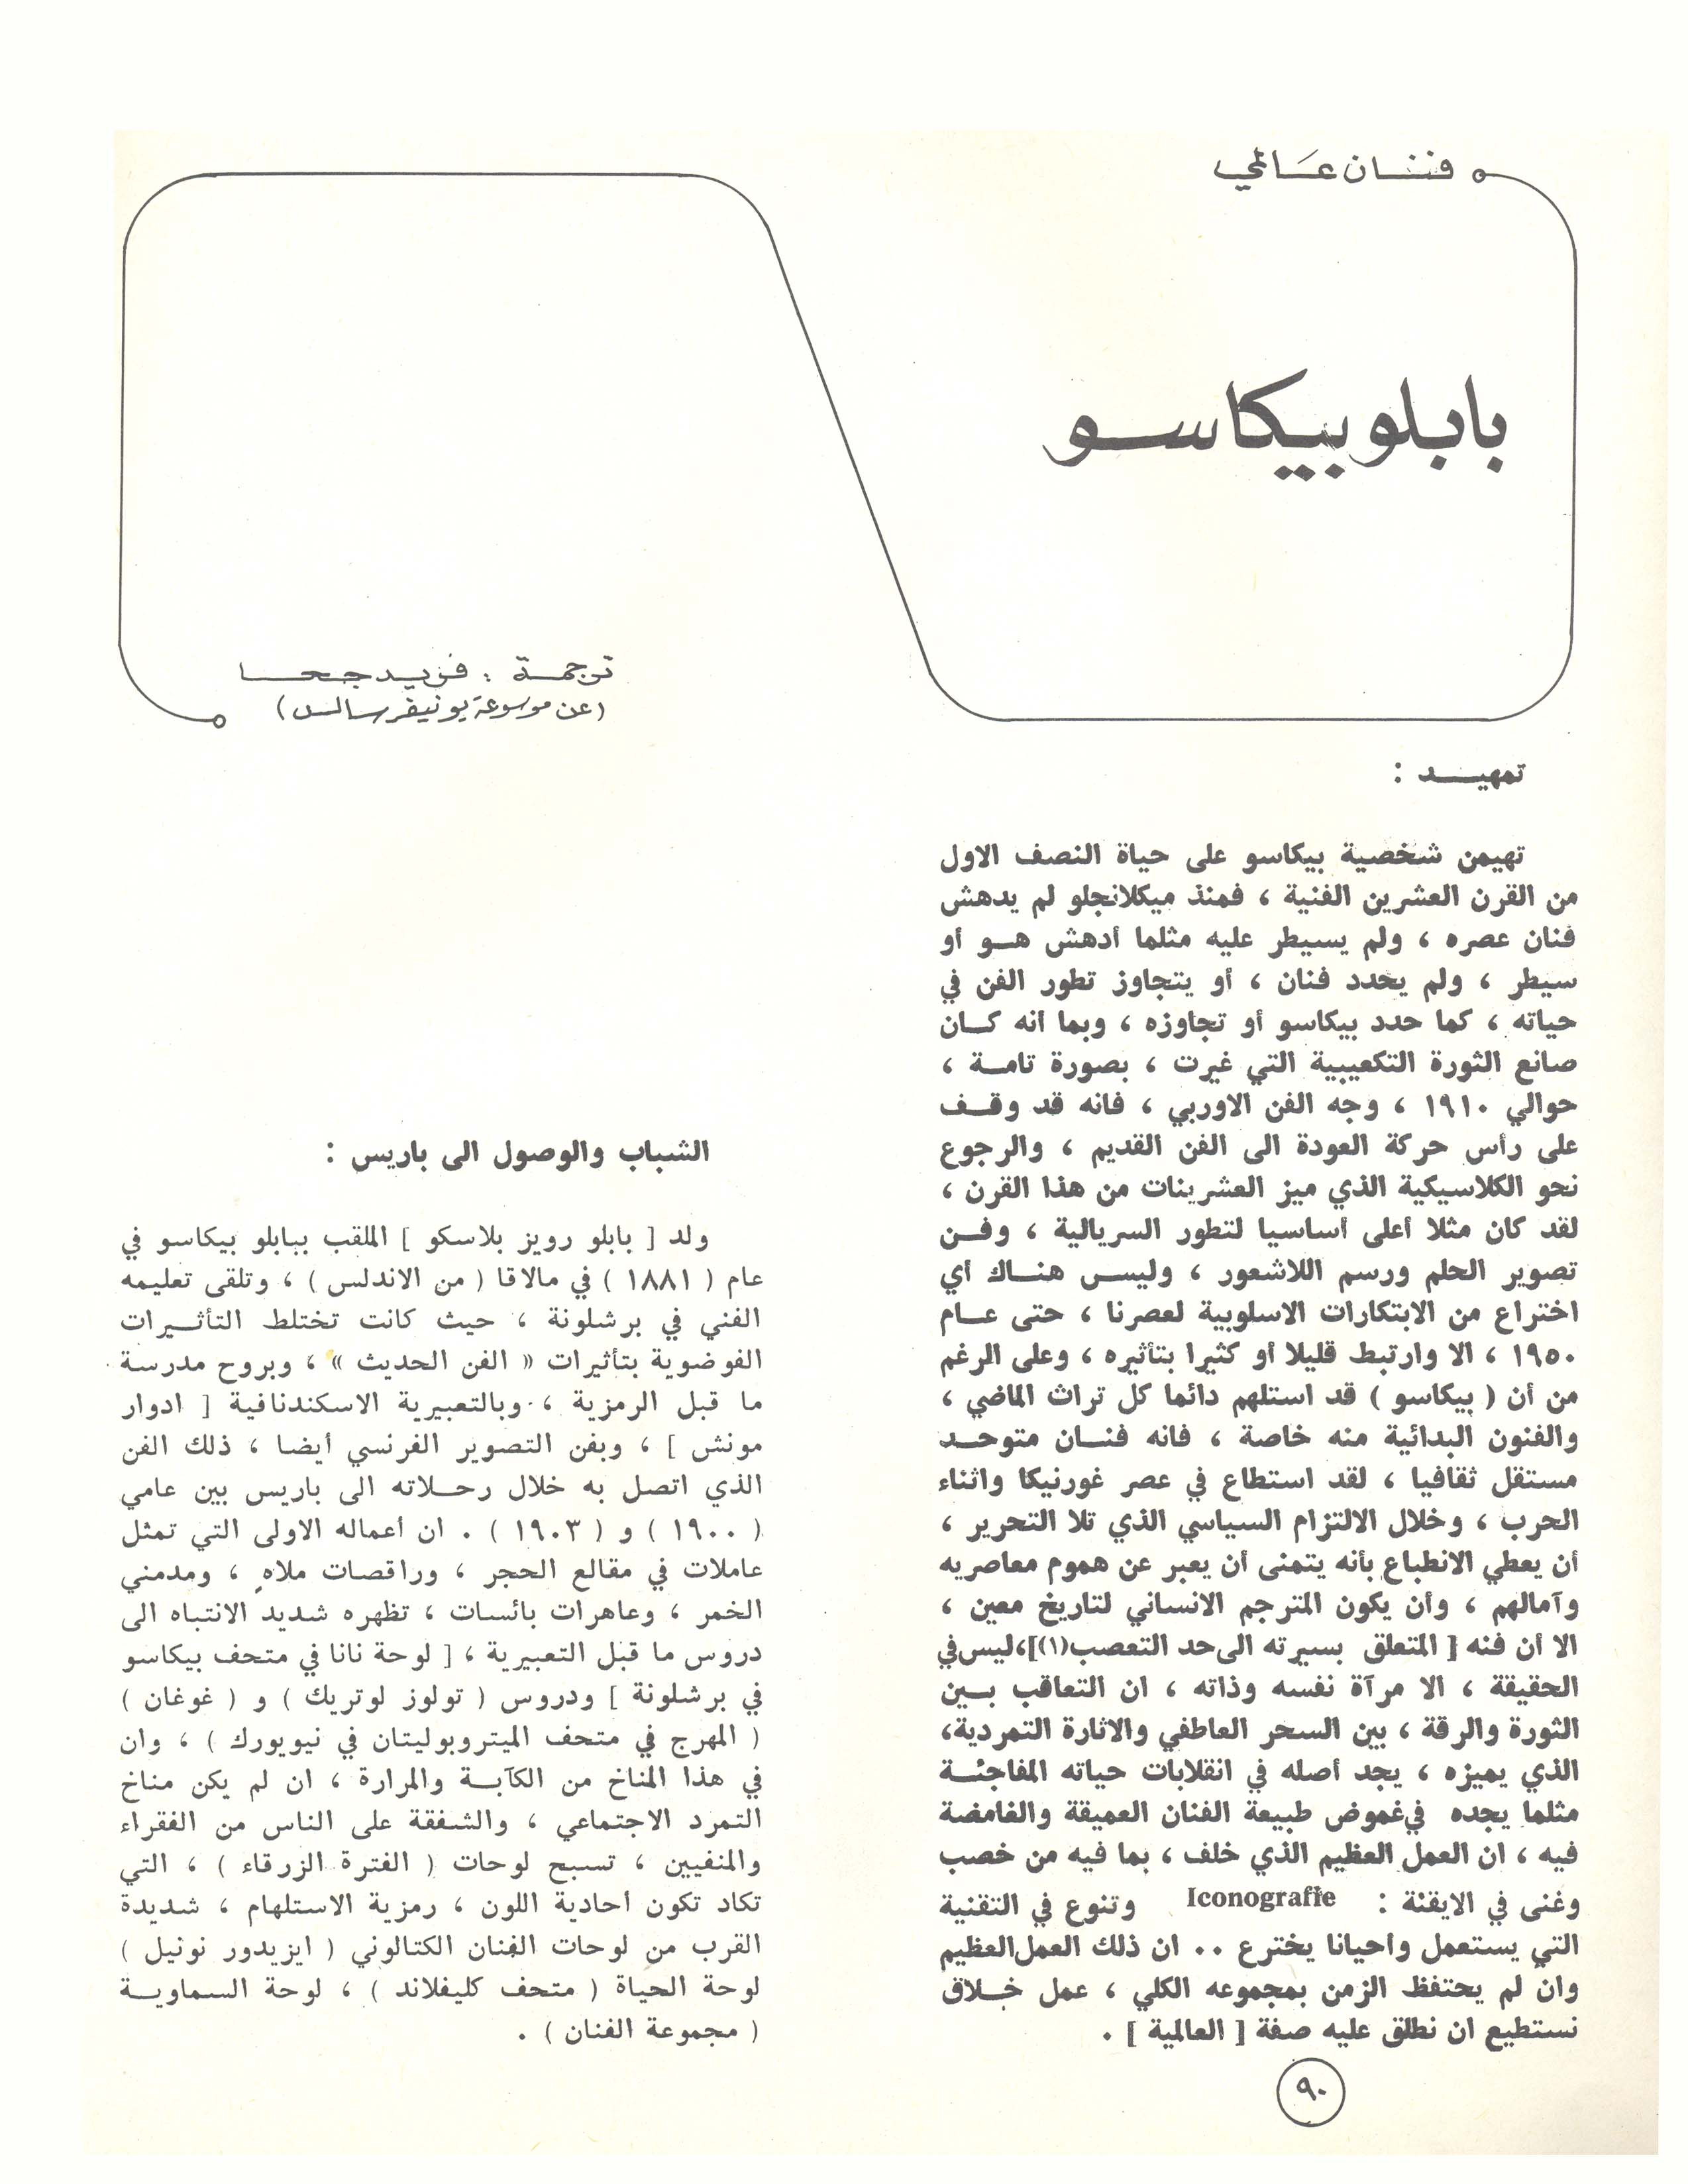 فنان عالمي
بابلو بيكاسو
ترجمة : فريد جحا
(عن موسوعة يونيفرسالس)
تمهيد :
تهيمن شخصية بيكاسو على حياة النصف الاول
من القرن العشرين الفنية ، فمنذ ميكلانجلو لم يدهش
فنان عصره ، ولم يسيطر عليه مثلما أدهش هو أو
سيطر ، ولم يحدد فنان ، أو يتجاوز تطور الفن في
حياته ، كما حدد بيكاسو أو تجاوزه ، وبما انه كان
صانع الثورة التكعيبية التي غيرت ، بصورة تامة ،
حوالي ١٩١٠ ، وجه الفن الاوربي ، فانه قد وقف
على رأس حركة العودة الى الفن القديم ، والرجوع
نحو الكلاسيكية الذي ميز العشرينات من هذا القرن ،
لقد كان مثلا أعلى أساسيا لتطور السريالية ، وفن
تصوير الحلم ورسم اللاشعور ، وليس هناك أي
اختراع من الابتكارات الاسلوبية لعصرنا ، حتى عام
١٩٥٠ ، الا وارتبط قليلا أو كثيرا بتأثيره ، وعلى الرغم
من أن ( بيكاسو ) قد استلهم دائما كل تراث الماضي ،
والفنون البدائية منه خاصة ، فانه فنان متوحد
مستقل ثقافيا ، لقد استطاع في عصر غورنيكا واثناء
الحرب ، وخلال الالتزام السياسي الذي تلا التحرير ،
أن يعطي الانطباع بأنه يتمنى أن يعبر عن هموم معاصريه
وآمالهم ، وأن يكون المترجم الانساني لتاريخ معين ،
الا أن فنه [ المتعلق بسيرته الى حد التعصب(١)]،ليس في
الحقيقة ، الا مرآة نفسه وذاته ، ان التعاقب بين
الثورة والرقة ، بين السحر العاطفي والاثارة التمردية،
الذي يميزه ، يجد أصله في انقلابات حياته المفاجئة
مثلما يجده في غموض طبيعة الفنان العميقة والغامضة
فيه ، ان العمل العظيم الذي خلف ، بما فيه من خصب
وغنى في الايقنة : Iconograffe وتنوع في التقنية
التي يستعمل واحيانا يخترع .. ان ذلك العمل العظيم
وان لم يحتفظ الزمن بمجموعه الكلي ، عمل خلاق
نستطيع ان نطلق عليه صفة [ العالمية ] .
الشباب والوصول الى باريس :
ولد [ بابلو رويز بلاسكو ] الملقب ببابلو بيكاسو في
عام ( ١٨٨١ ) في مالاقا ( من الاندلس ) ، وتلقى تعليمه
الفني في برشلونة ، حيث كانت تختلط التأثيرات
الفوضوية بتأثيرات « الفن الحديث » ، وبروح مدرسة
ما قبل الرمزية ، وبالتعبيرية الاسكندنافية [ ادوار
مونش ] ، وبفن التصوير الفرنسي أيضا ، ذلك الفن
الذي اتصل به خلال رحلاته الى باريس بين عامي
( ١٩٠٠ ) و ( ١٩٠٣ ) . ان أعماله الاولى التي تمثل
عاملات في مقالع الحجر ، وراقصات ملاهٍ ، ومدمني
الخمر ، وعاهرات بائسات ، تظهره شديد الانتباه الى
دروس ما قبل التعبيرية ، [ لوحة نانا في متحف بيكاسو
في برشلونة ] ودروس ( تولوز لوتريك ) و ( غوغان )
( المهرج في متحف الميتروبوليتان في نيويورك ) ، وان
في هذا المناخ من الكآبة والمرارة ، ان لم يكن مناخ
التمرد الاجتماعي ، والشفقة على الناس من الفقراء
والمنفيين ، تسبح لوحات ( الفترة الزرقاء ) ، التي
تكاد تكون أحادية اللون ، رمزية الاستلهام ، شديدة
القرب من لوحات الفنان الكتالوني ( ايزيدور نونيل )
لوحة الحياة ( متحف كليفلاند ) ، لوحة السماوية
( مجموعة الفنان ) .
٩٠